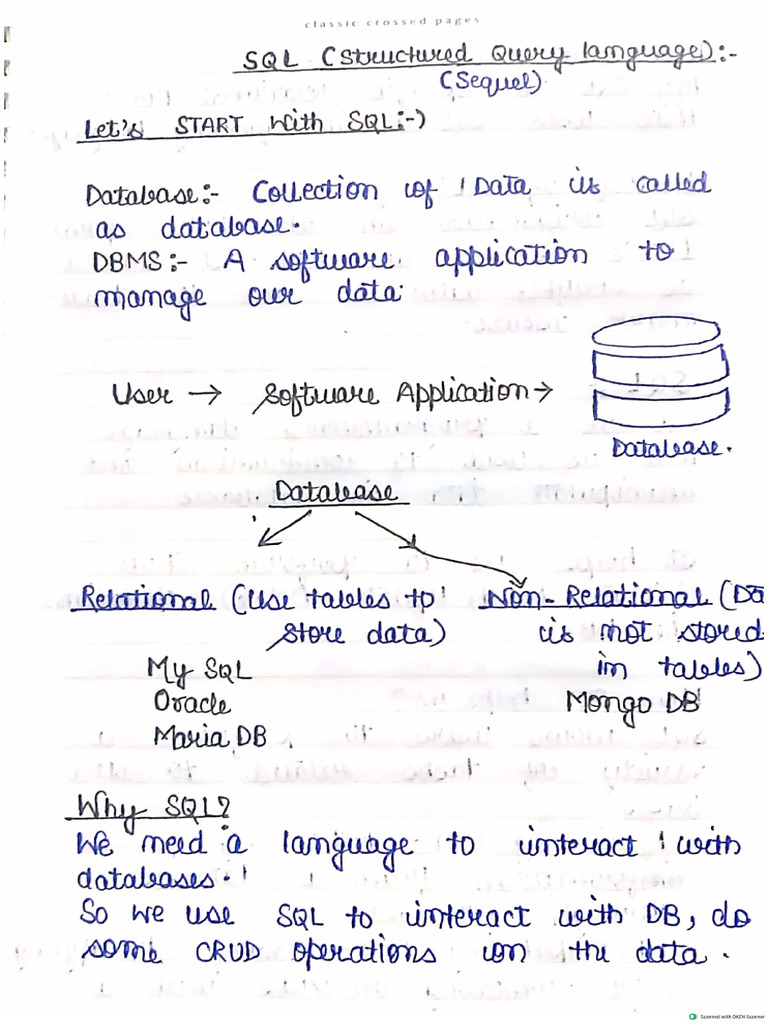 classic crossed pages
SQL (Structured Query language):-
(Sequel)
Let's START with SQL:-)
Database:- Collection of Data is called
as database.
DBMS:- A software application to
manage our data.
User → Software Application →
Database.
Database
Relational (Use tables to
store data)
My SQL
Oracle
Maria DB
Non-Relational (Da
is not stored
in tables)
Mongo DB
Why SQL?
We need a language to interact with
databases.
So we use SQL to interact with DB, do
some CRUD operations on the data.
Scanned with OKEN Scanner